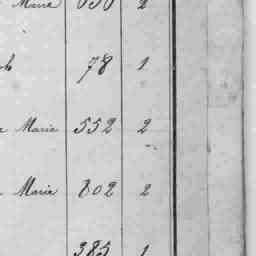 Marie 630 2
78 1
Marie 552 2
Marie 802 2
385 1